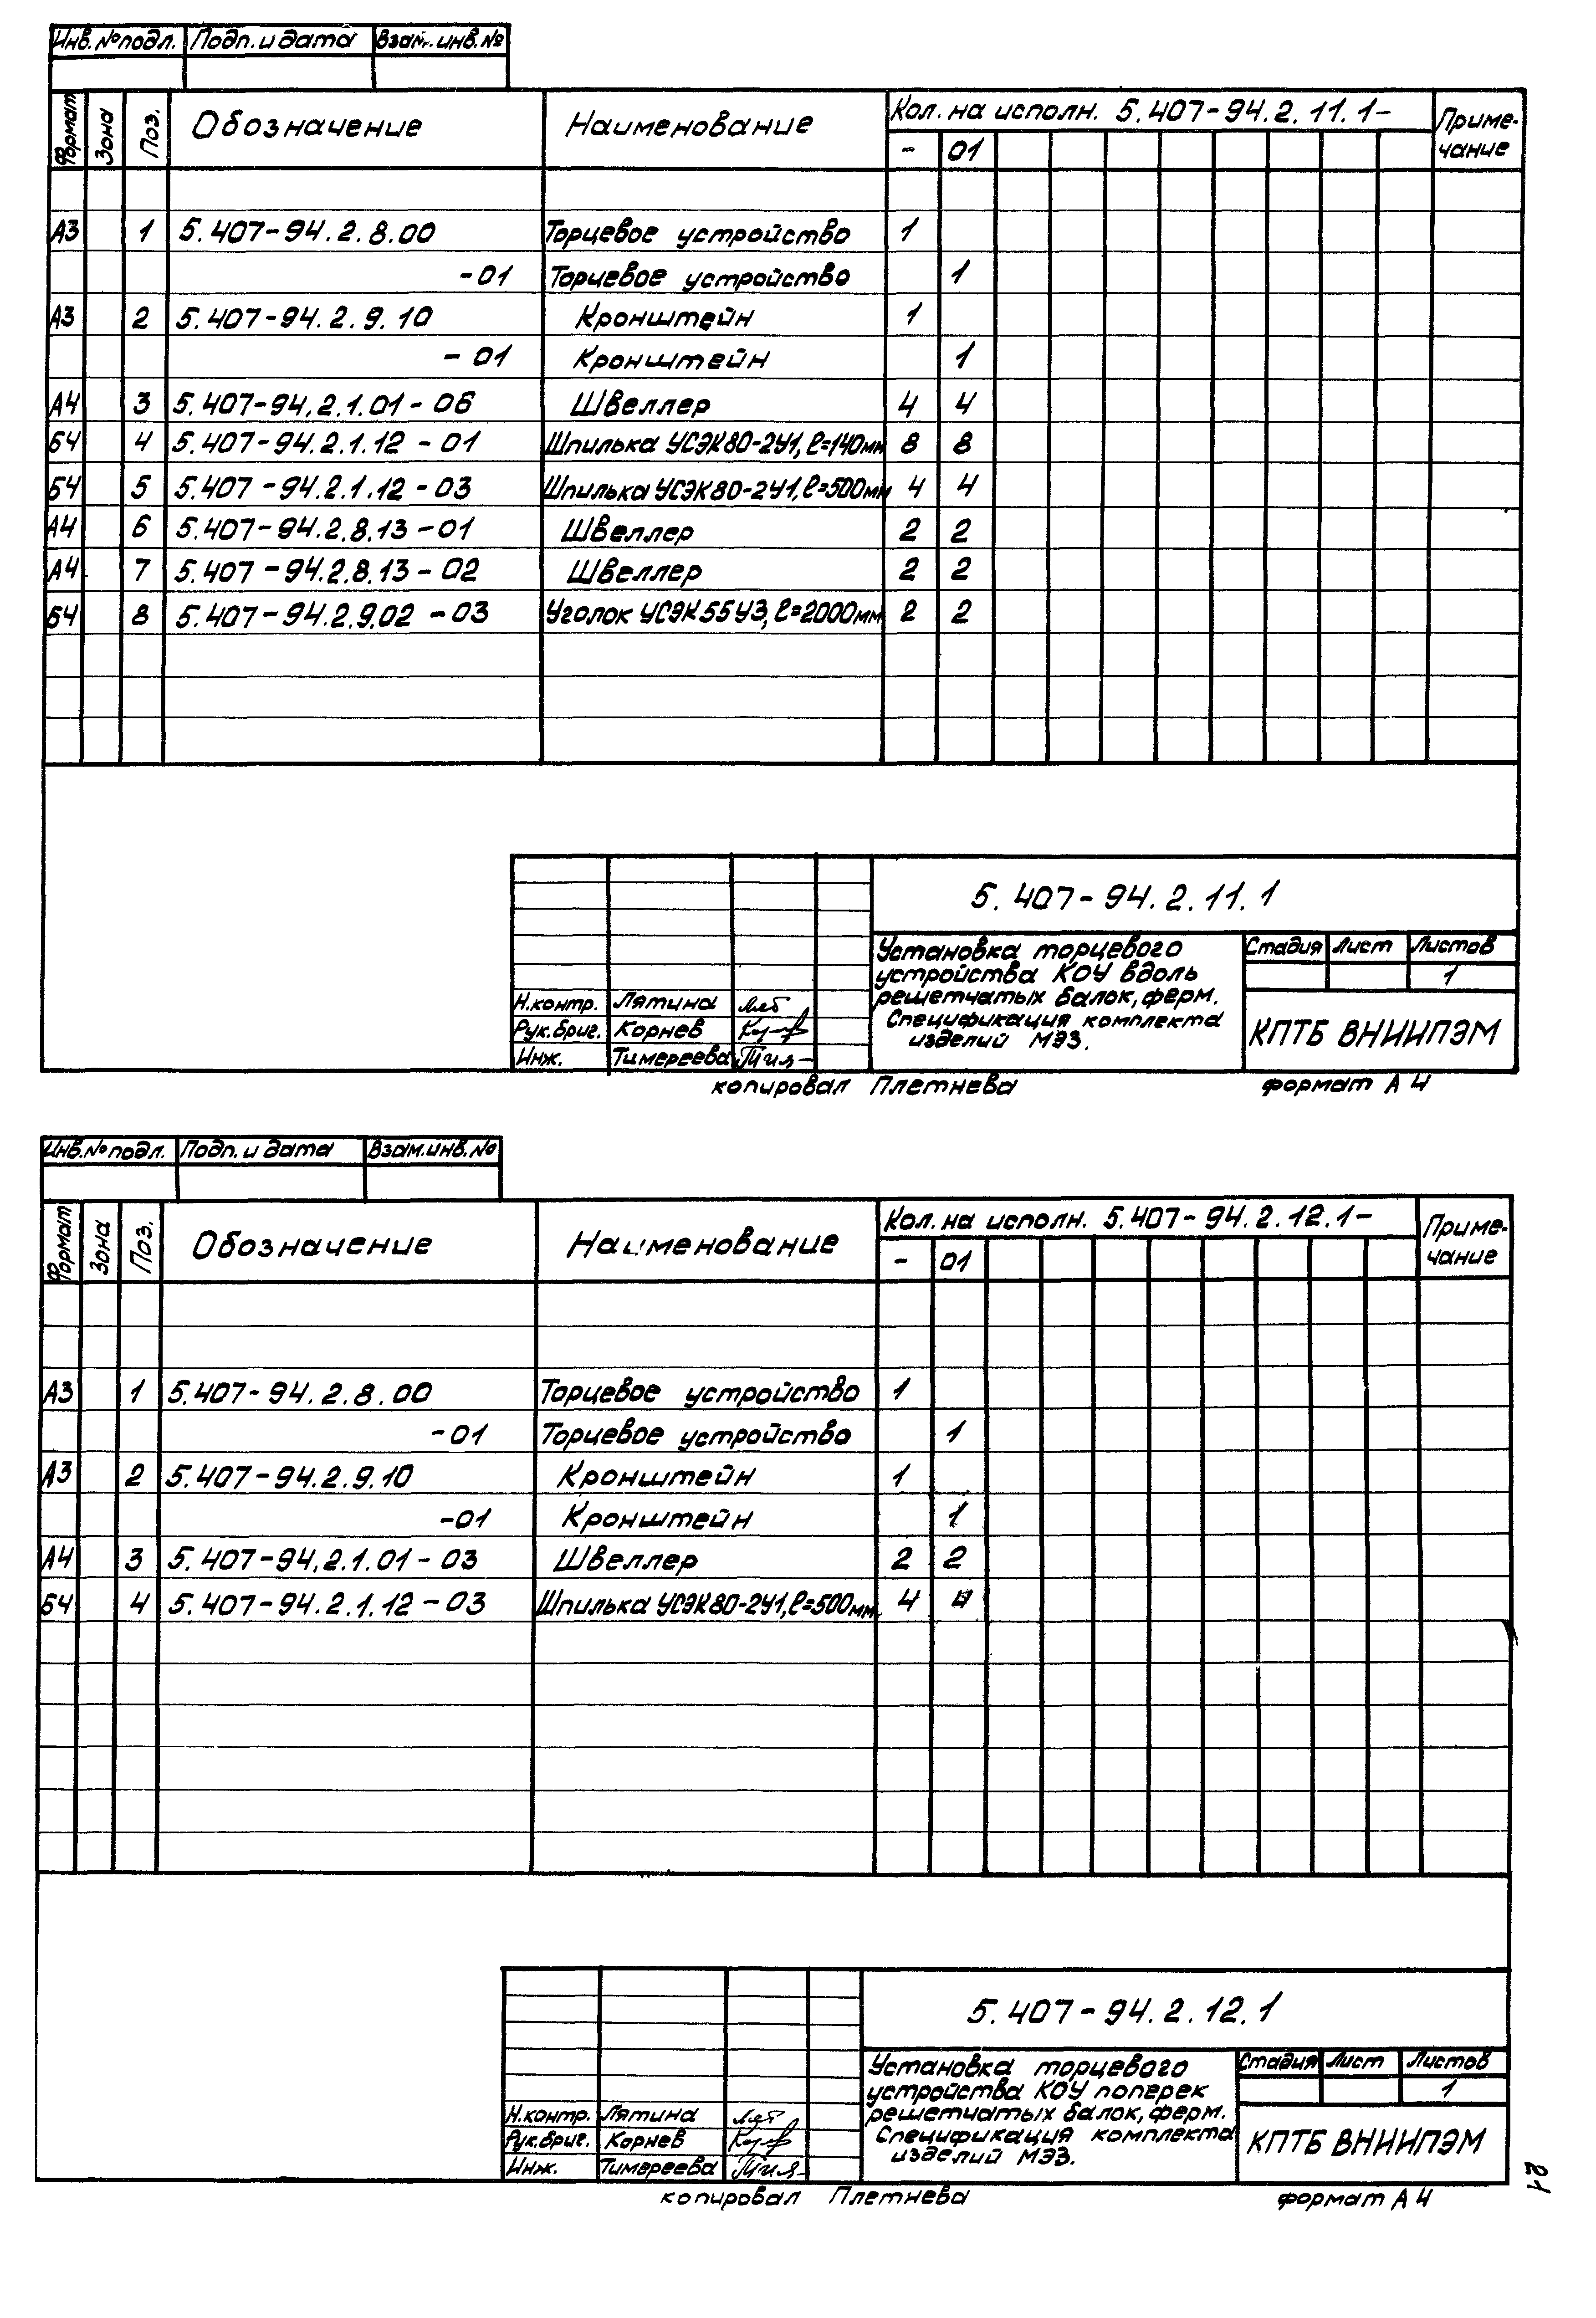 Инв.№подл. Подп. и дата Взам. инв. №
Формат Зона Поз. Обозначение Наименование Кол. на исполн. 5.407-94.2.11.1- Приме-
чание
- 01
А3 1 5.407-94.2.8.00 Торцевое устройство 1
-01 Торцевое устройство 1
А3 2 5.407-94.2.9.10 Кронштейн 1
-01 Кронштейн 1
А4 3 5.407-94.2.1.01-06 Швеллер 4 4
Б4 4 5.407-94.2.1.12-01 Шпилька УСЭК80-2У1, ℓ=140мм 8 8
Б4 5 5.407-94.2.1.12-03 Шпилька УСЭК80-2У1, ℓ=500мм 4 4
А4 6 5.407-94.2.8.13-01 Швеллер 2 2
А4 7 5.407-94.2.8.13-02 Швеллер 2 2
Б4 8 5.407-94.2.9.02-03 Уголок УСЭК55У3, ℓ=2000мм 2 2
5.407-94.2.11.1
Установка торцевого
устройства КОУ вдоль
решетчатых балок, ферм.
Спецификация комплекта
изделий МЭЗ.
Стадия Лист Листов
1
КПТБ ВНИИПЭМ
Н.контр. Лятина
Рук.бриг. Корнев
Инж. Тимереева
копировал Плетнева формат А4
Инв.№подл. Подп. и дата Взам.инв.№
Формат Зона Поз. Обозначение Наименование Кол. на исполн. 5.407-94.2.12.1- Приме-
чание
- 01
А3 1 5.407-94.2.8.00 Торцевое устройство 1
-01 Торцевое устройство 1
А3 2 5.407-94.2.9.10 Кронштейн 1
-01 Кронштейн 1
А4 3 5.407-94.2.1.01-03 Швеллер 2 2
Б4 4 5.407-94.2.1.12-03 Шпилька УСЭК80-2У1, ℓ=500мм 4 4
5.407-94.2.12.1
Установка торцевого
устройства КОУ поперек
решетчатых балок, ферм.
Спецификация комплекта
изделий МЭЗ.
Стадия Лист Листов
1
КПТБ ВНИИПЭМ
Н.контр. Лятина
Рук.бриг. Корнев
Инж. Тимереева
копировал Плетнева формат А4
21